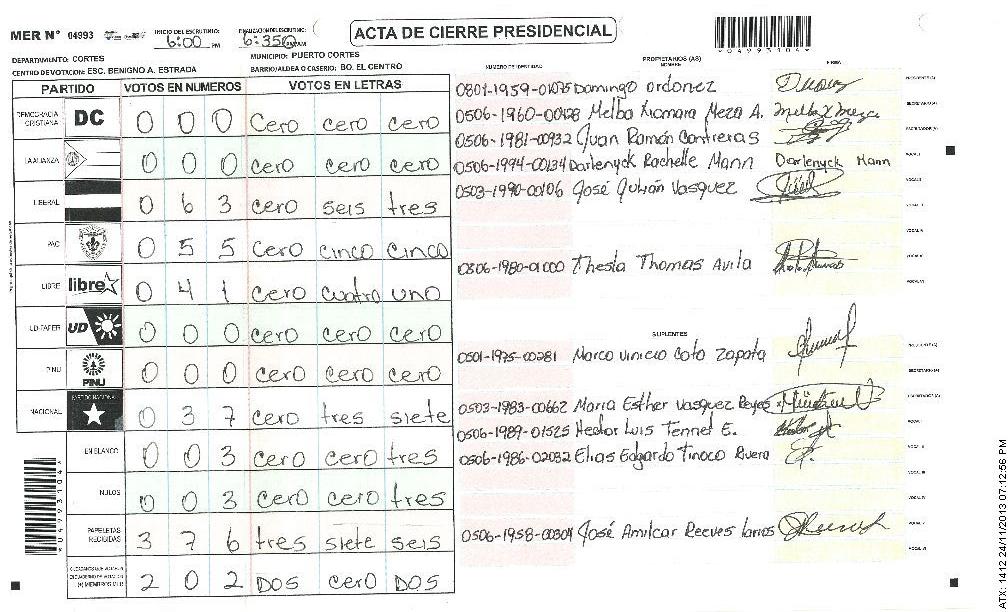 MER N° 04993
INICIO DEL ESCRUTINIO: 6:00 PM
FINALIZACION DEL ESCRUTINIO: 6:35
ACTA DE CIERRE PRESIDENCIAL
*04993104*
DEPARTAMENTO: CORTES
MUNICIPIO: PUERTO CORTES
CENTRO DE VOTACION: ESC. BENIGNO A. ESTRADA
BARRIO/ALDEA O CASERIO: BO. EL CENTRO
PARTIDO VOTOS EN NUMEROS VOTOS EN LETRAS
DEMOCRACIA CRISTIANA DC 0 0 0 cero cero cero
LA ALIANZA 0 0 0 cero cero cero
LIBERAL 0 6 3 cero seis tres
PAC 0 5 5 cero cinco cinco
LIBRE libre 0 4 1 cero cuatro uno
UD-FAPER UD 0 0 0 cero cero cero
PINU PINU 0 0 0 cero cero cero
NACIONAL PARTIDO NACIONAL 0 3 7 cero tres siete
EN BLANCO 0 0 3 cero cero tres
NULOS 0 0 3 cero cero tres
PAPELETAS RECIBIDAS 3 7 6 tres siete seis
2 0 2 DOS cero DOS
*04993104*
NUMERO DE IDENTIDAD PROPIETARIOS (AS) NOMBRE FIRMA
0801-1959-01075 Domingo ordonez PRESIDENTE (A)
0506-1960-00128 Melba Xiomara Meza A. Melba X Meza SECRETARIO (A)
0506-1981-00932 Juan Ramón Contreras ESCRUTADOR (A)
0506-1994-00134 Darlenyck Rachelle Mann Darlenyck Mann VOCAL I
0503-1990-00106 José Julián Vasquez VOCAL II
0806-1980-01000 Thesla Thomas Avila
SUPLENTES
0501-1975-00281 Marco vinicio Coto Zapata PRESIDENTE (A)
SECRETARIO (A)
0503-1983-00662 Maria Esther Vasquez Reyes ESCRUTADOR (A)
0506-1989-01525 Hector Luis Tennel E. VOCAL I
0506-1986-02032 Elias Edgardo Tinoco Rivera VOCAL II
0506-1958-00304 José Amilcar Reeves
ATX: 1412 24/11/2013 07:12:56 PM